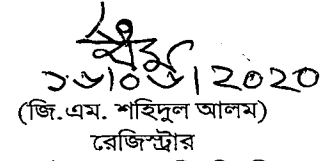 ১৬|০৬|2020
(জি.এম. শহিদুল আলম)
রেজিস্ট্রার